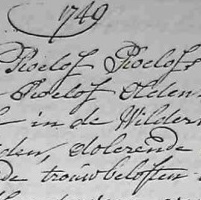 1749
Roelof Roelofs
Roelof Olden
in de Wilder
den, dolerende
de trouwbeloften